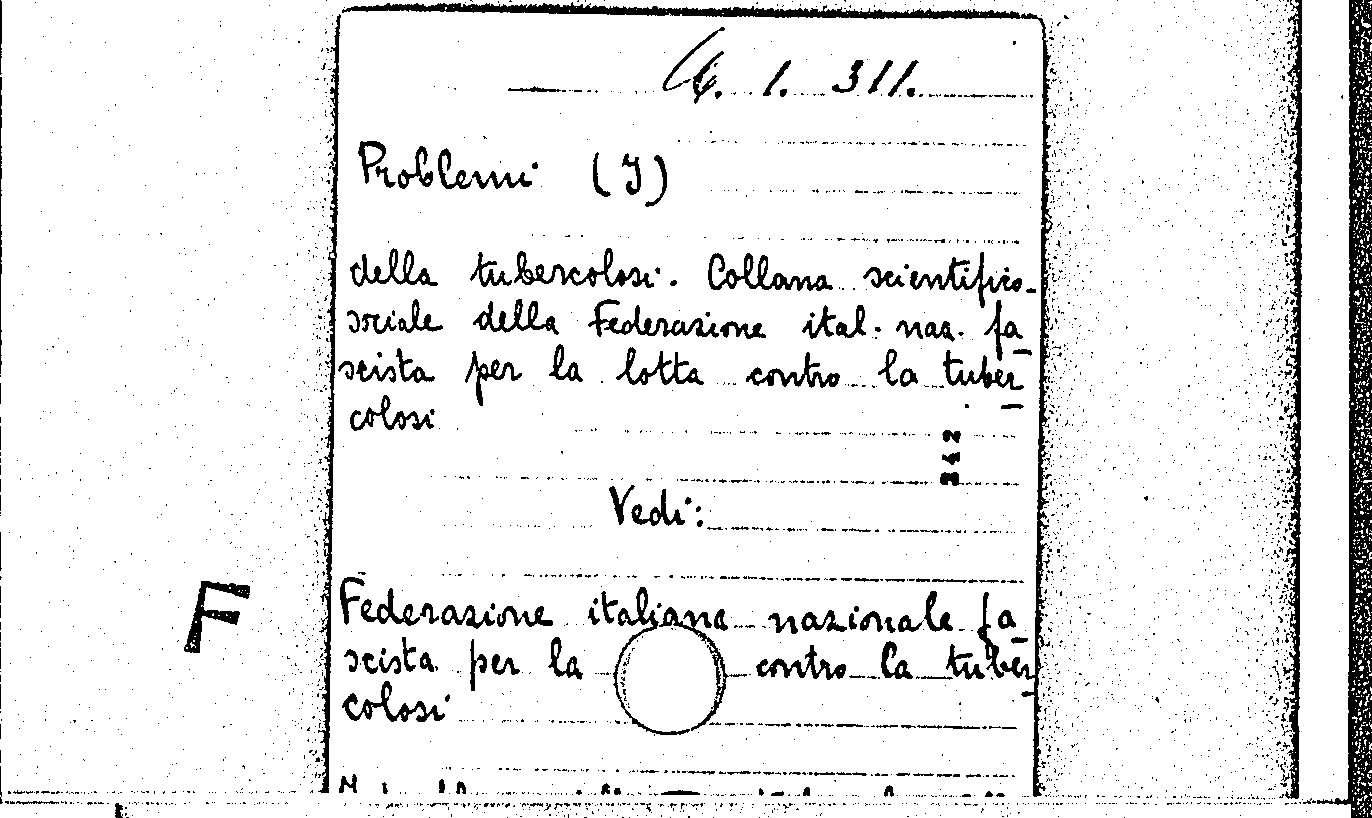 4. 1. 311.
Problemi (I)
della tubercolosi. Collana scientifico-
sociale della Federazione ital. naz. fa
scista per la lotta contro la tuber
colosi
342
Vedi:
Federazione italiana nazionale fa
F
scista per la contro la tuber
colosi